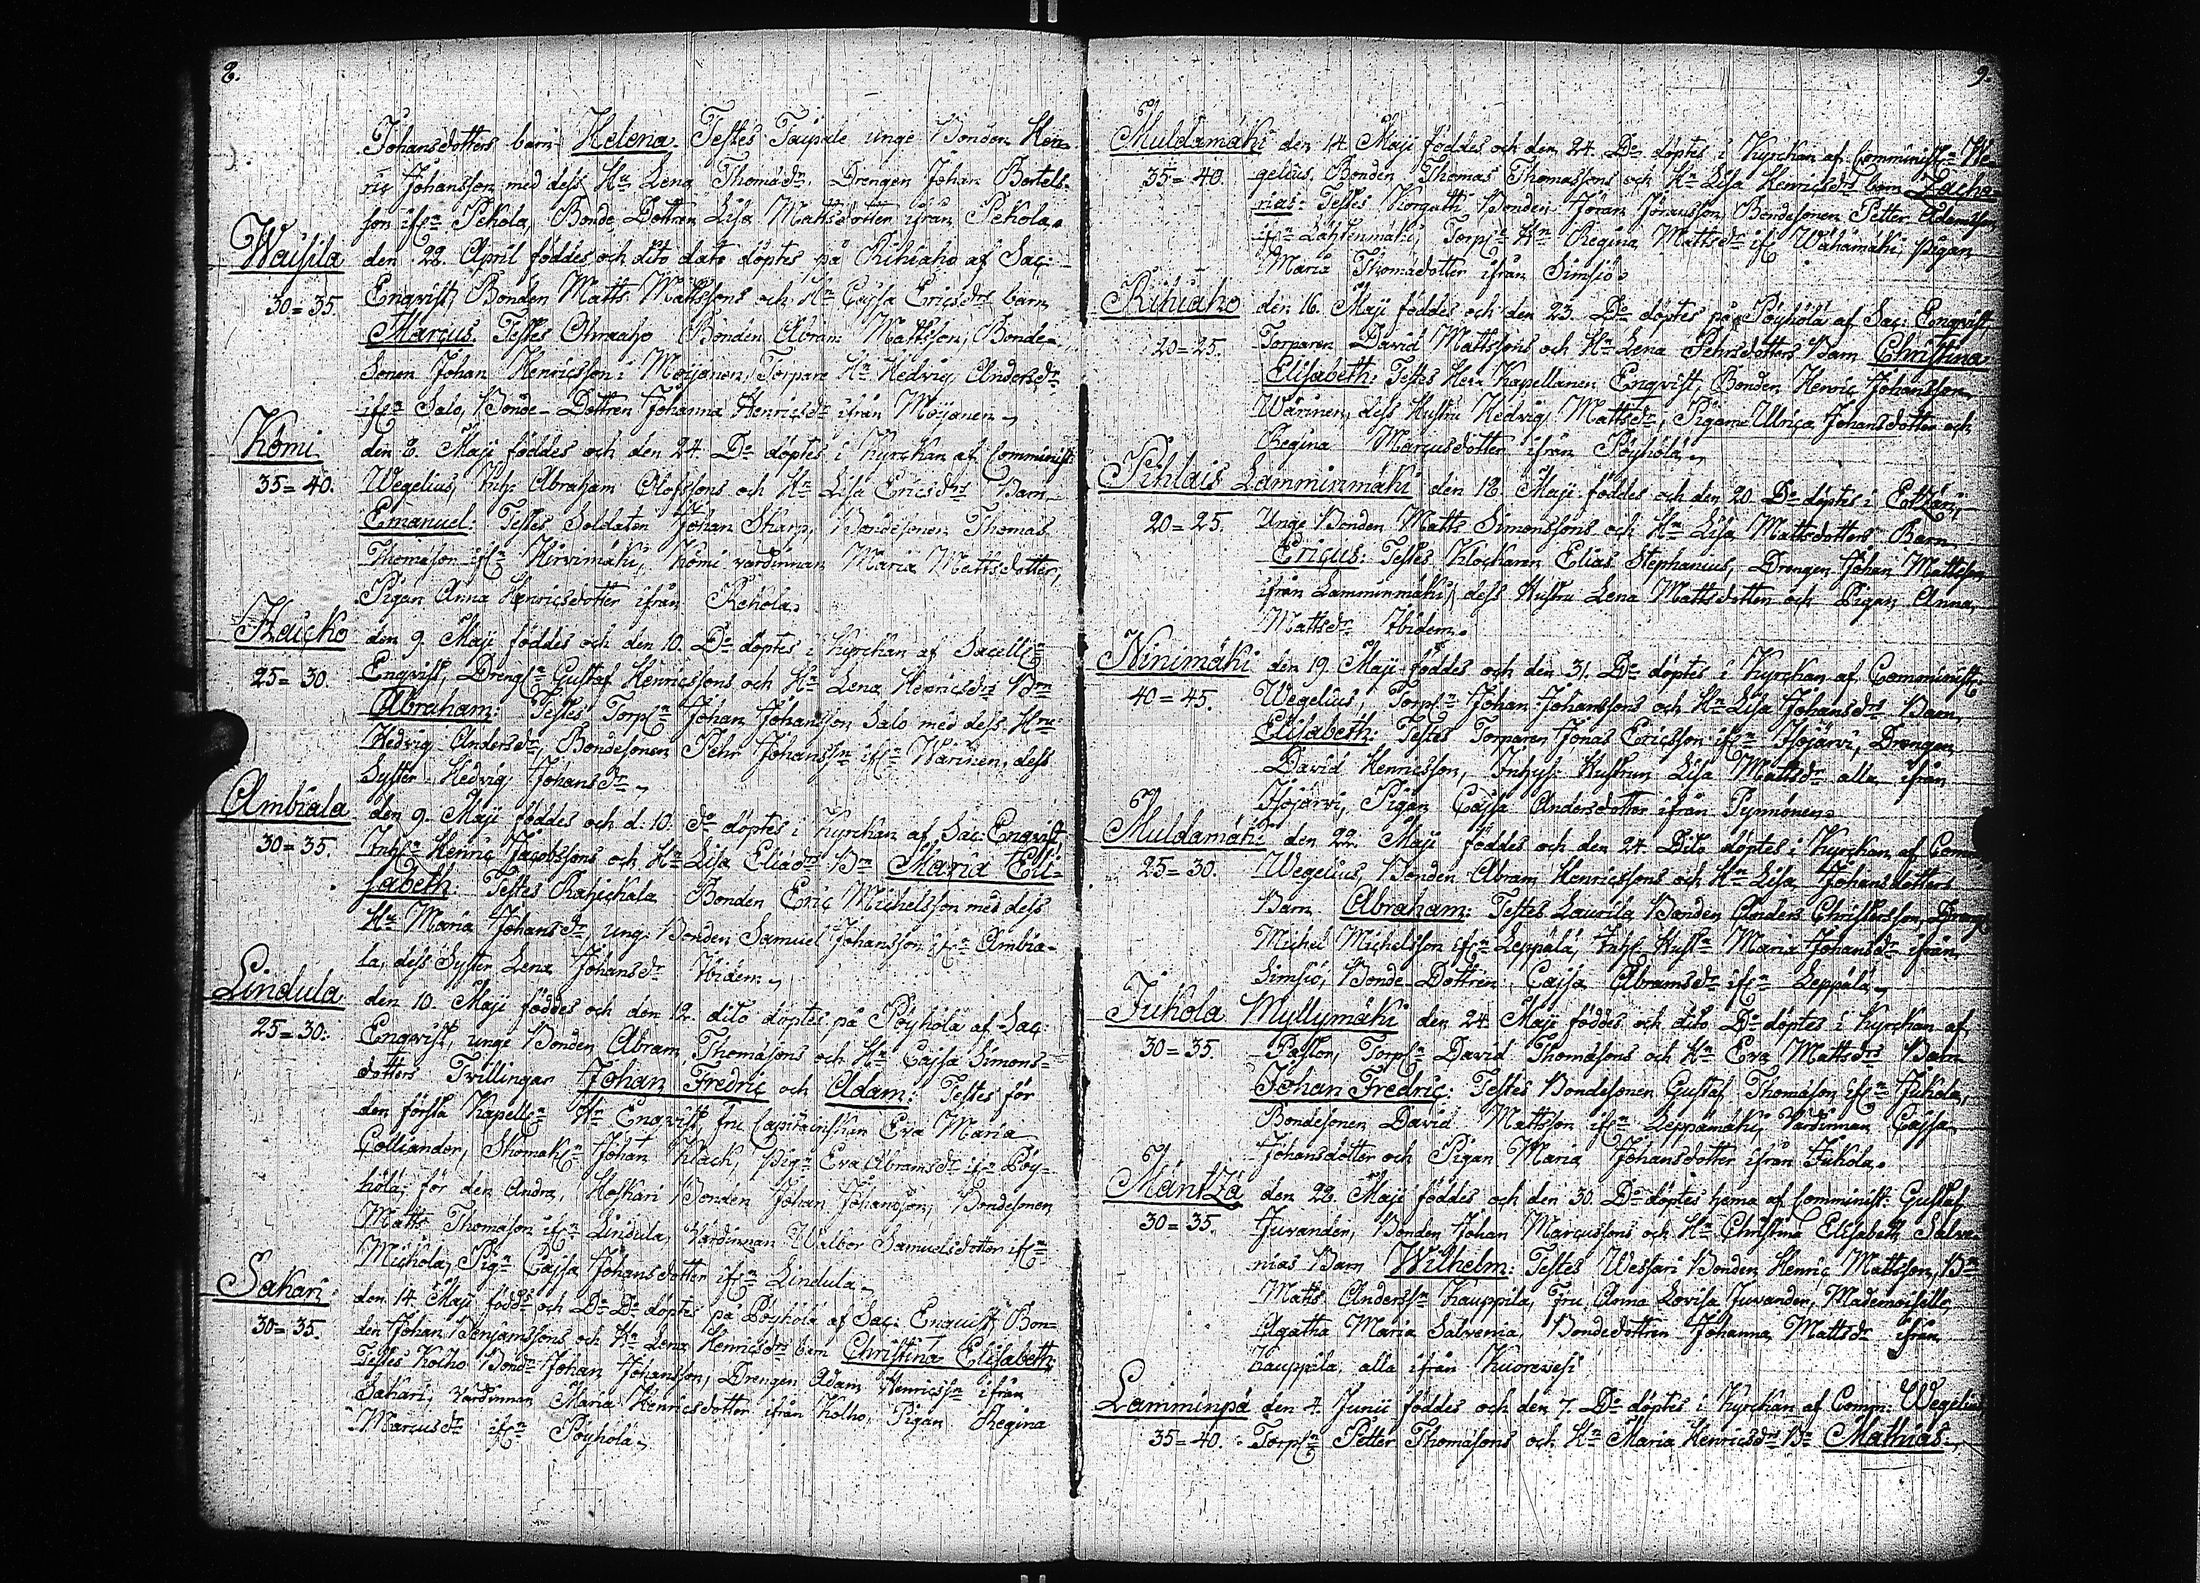 8.
Johansdotters barn Helena. Testes Taipale unge Bonden Hen-
ric Johansson med dess Hu Lena Thomædr. Drengen Johan Bertels-
son ifrn Pekola, Bonde Dottren Lisa Mattsdotter ifrån Pekola.
Waisila den 22. April föddes och dito dato döptes på Rihiaho af Sac:
30=35. Enqvist, Bonden Matts Mattssons och Hu Cajsa Ericsdrs barn
Marcus. Testes Bonden Abram Mattsson, Bonde-
Sonen Johan Henricsson i Moijanen, Torpare Hn Hedvig Andersdr
ifrn Salo, Bonde-Dottren Johanna Henricsdr ifrån Moijanen
Komi den 8. Maji föddes och den 24. Do döptes i Kyrckan af Comminist:
35=40. Wegelius, Inh: Abraham Olofssons och Hn Lisa Ericsdrs Barn
Emanuel: Testes Soldaten Johan Skarp, Bondesonen Thomas
Thomasson ifrn Hirvimäki, Komi värdinnan Maria Mattsdotter,
Pigan Anna Henricsdotter ifrån Rehola.
Haicko den 9. Maji föddes och den 10. Do döptes i Kyrckan af Sacelln
25=30. Enqvist, Drengn Gustaf Henricssons och Hn Lena Henricsdrs Brn
Abraham: Testes Torpn Johan Johansson Salo med dess Hru
Hedvig Andersdr, Bondesonen Pehr Johanssn ifrn Warinen, dess
Syster Hedvig Johansdr
Ambiala den 9. Maji föddes och d: 10: do döptes i Kyrckan af Sac: Enqvist,
30=35. Inhn Henric Jacobssons och Hn Lisa Eliædrs Brn Maria Eli-
sabeth. Testes Rajickala Bonden Eric Michelsson med dess
Hu Maria Johansdr, unge Bonden Samuel Johansson ifrn Ambia-
la, dess Syster Lena Johansdr Ibidem
Lindula den 10. Maji föddes och den 12. dito döptes på Pöyhölä af Sac:
25=30: Enqvist, unge Bonden Abram Thomæsons och Hn Cajsa Simons-
dotters Tvillingar Johan Fredric och Adam: Testes för
den första Kapelln Hr Enqvist, Fru Capitainskan Eva Maria
Colliander, Skomakn Johan Klack, Pign Eva Abramsdr ifrn Pöy-
hölä; för den Andra, Hoskari Bonden Johan Johansson, Bondesonen
Matts Thomæson ifrn Lindula, Värdinnan Walbor Samuelsdotter ifrn
Mickola, Pign Cajsa Johansdotter ifrn Lindula
Sakari den 14. Maji födds och Do Do döptes på Pöyhölä af Sac: Enqvist, Bon-
30=35. den Johan Benjamssons och Hn Lena Henricsdrs barn Christina Elisabeth
Testes Kolho Bondn Johan Johansson, Drengen Adam Henricssn ifrån
Sakari, Värdinnan Maria Henricsdotter ifrån Kolho, Pigan Regina
Marcusdr ifrn Pöyhölä
9.
Muldamäki den 14. Maji föddes och den 24. Do döptes i Kyrckan af Comministrn We-
35=40. gelius, Bonden Thomas Thomassons och Hn Lisa Henricsdrs barn Zacha-
rias: Testes Korgatti Bonden Jöran Jöransson, Bondesonen Petter Adamsson
ifrn Lahtenmäki, Torpn Hn Regina Mattsdr ifrn Wähämäki, Pigan
Maria Thomædotter ifrån Simsiö.
Rihiaho den 16. Maji föddes och den 23. Do döptes på Pöyhölä af Sac: Enqvist,
20=25. Torparen David Mattssons och Hn Lena Pehrsdotters Barn Christina
Elisabeth: Testes Herr Kapellanen Enqvist, Bonden Henric Johansson
Wärinen, dess Hustru Hedvig Mattsdr, Pigorne Ulrica Johansdotter och
Regina Marcusdotter ifrån Pöyhölä
Pihlais Lamminmäki den 18. Maji föddes och den 20. Do döptes i Etzäri,
20=25. Unge Bonden Matts Simonssons och Hn Lisa Mattsdotters Barn
Ericus: Testes Klockaren Elias Stephanius, Drengen Johan Mattsson
ifrån Lamminmäki, dess Hustru Lena Mattsdotter och Pigan Anna
Mattsdr Ibidem.
Ninimäki den 19. Maji föddes och den 31. Do döptes i Kyrckan af Comministr:
40=45. Wegelius, Torpn Johan Johanssons och Hn Lisa Johansdrs Barn
Elisabeth: Testes Torparen Jonas Ericsson ifrn Isojärvi, Drengen
David Henricsson, Inhys: Hustrun Lisa Mattsdr alla ifrån
Isojärvi, Pigan Cajsa Andersdotter ifrån Pynnönen
Muldamäki den 22. Maji föddes och den 24 Dito döptes i Kyrckan af Comm
25=30. Wegelius, Bonden Abram Henricssons och Hn Lisa Johansdotters
Barn Abraham: Testes Laurila Bonden Anders Christersson, Dreng
Michel Michelsson ifrn Leppälä, Inh: Hustn Maria Johansdr ifrån
Simsiö, Bonde-Dottren Cajsa Abramsdr ifrn Leppälä
Jukola Myllymäki den 24. Maji föddes och dito Do döptes i Kyrckan af
30=35. Paston, Torpn David Thomæsons och Hn Eva Mattsdrs Barn
Johan Fredric: Testes Bondesonen Gustaf Thomæson ifrn Jukola,
Bondesonen David Mattsson ifrn Leppämäki, Värdinnan Cajsa
Johansdotter och Pigan Maria Johansdotter ifrån Jukola.
Mäntzä den 28. Maji föddes och den 30. Do döptes hema af Comminist: Gustaf
30=35. Juvander, Bonden Johan Marcussons och Hn Christina Elisabeth Salve-
nias Barn Wilhelm: Testes Wessari Bonden Henric Mattsson, Bn
Matts Anderssn Kauppila, Fru Anna Lovisa Juvander, Mademoiselle
Agatha Maria Salvenia, Bondedottren Johanna Mattsdr ifrån
Kauppila, alla ifrån Kuorevesi
Lamminpä den 4. Junii föddes och den 7. Do döptes i Kyrckan af Comm: Wegelius
35=40. Torpn Petter Thomæsons och Hn Maria Henricsdrs Bn Mathias